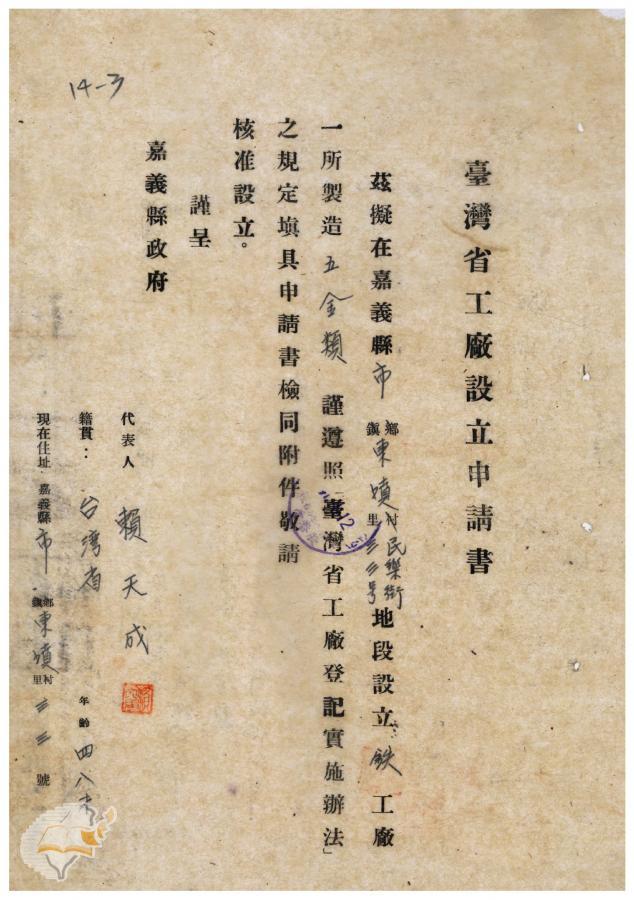 14-3
臺灣省工廠設立申請書
茲擬在嘉義縣市鄉鎮東墳村里民樂街三三号地段設立鉄工廠
一所製造五金類謹遵照「臺灣省工廠登記實施辦法」
之規定填具申請書檢同附件敬請
核准設立。
謹呈
嘉義縣政府
代表人 賴天成
籍貫：台湾省 年齡 四八才
現在住址 嘉義縣市鄉鎮東墳村里三三號